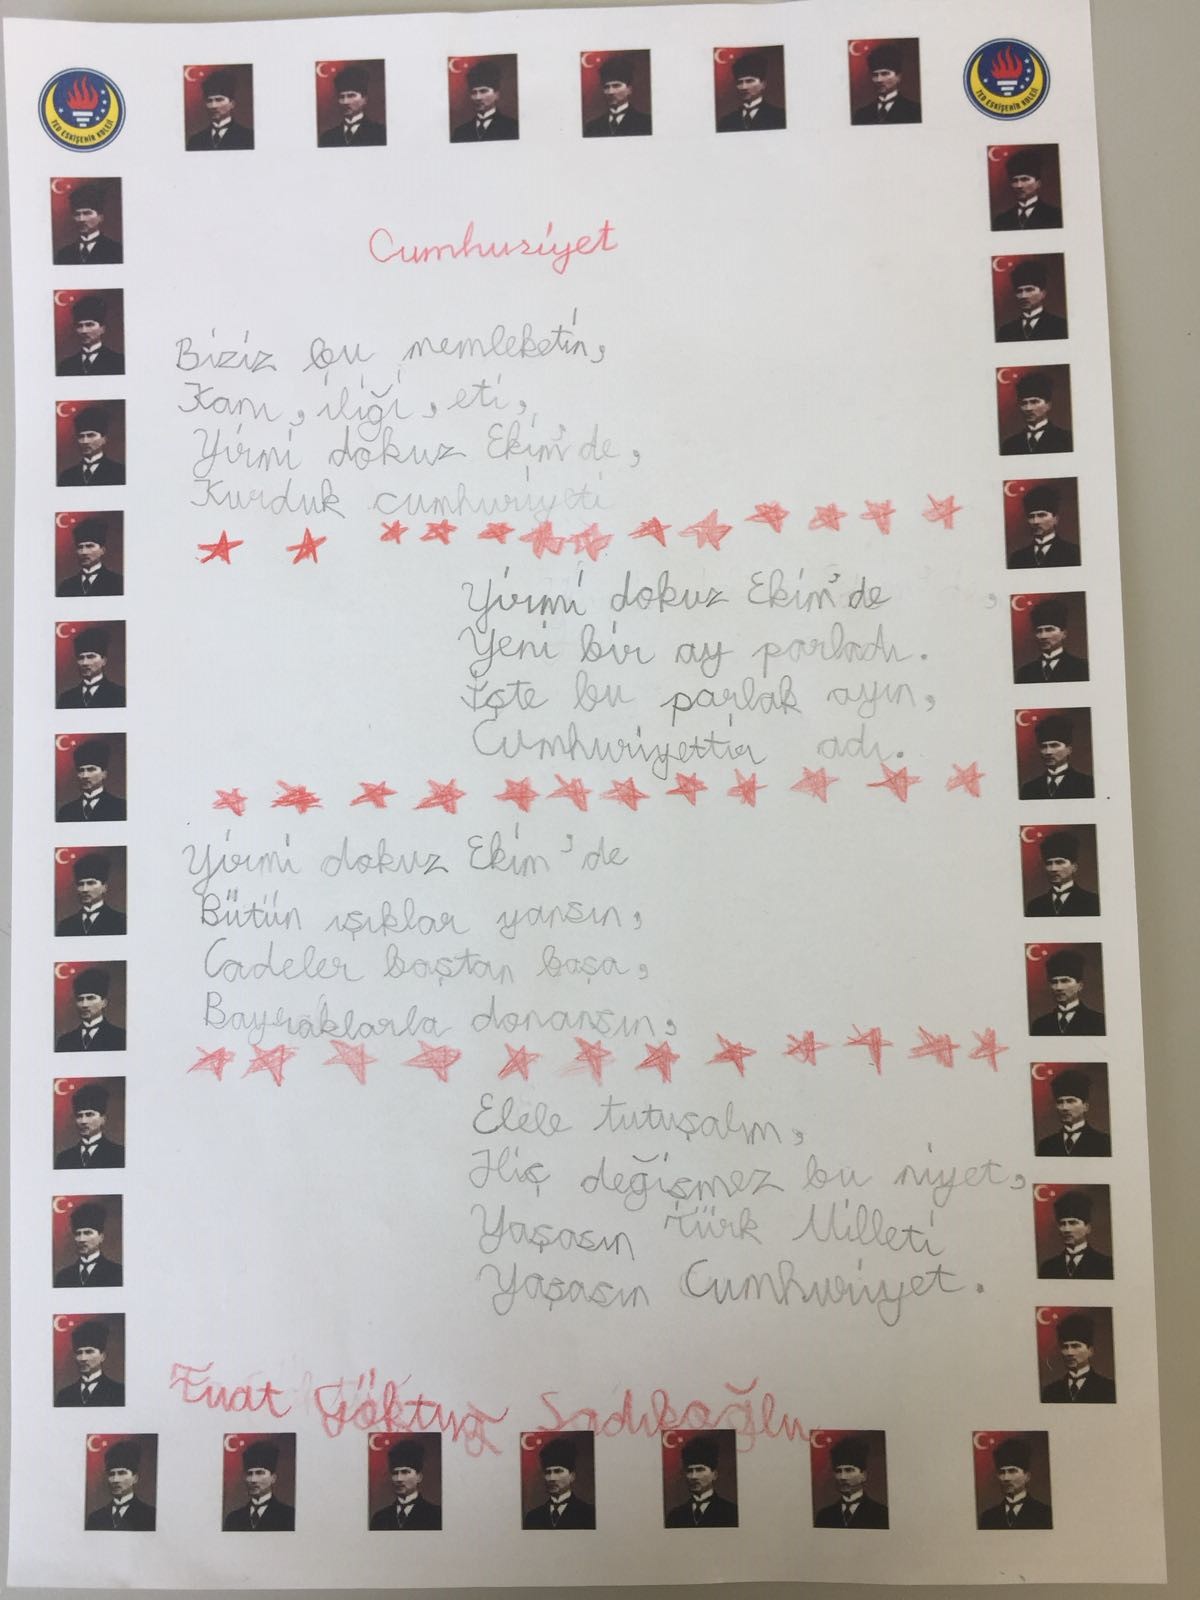 TED ESKİŞEHİR KOLEJİ
TED ESKİŞEHİR KOLEJİ
Cumhuriyet
Biziz bu memleketin,
Kanı, iliği, eti,
Yirmi dokuz Ekim'de,
Kurduk cumhuriyeti
Yirmi dokuz Ekim'de,
Yeni bir ay parladı.
İşte bu parlak ayın,
Cumhuriyettir adı.
Yirmi dokuz Ekim'de
Bütün ışıklar yansın,
Cadeler baştan başa,
Bayraklarla donansın,
Elele tutuşalım,
Hiç değişmez bu niyet,
Yaşasın Türk Milleti
Yaşasın Cumhuriyet.
Fuat Göktuğ Sadıkoğlu